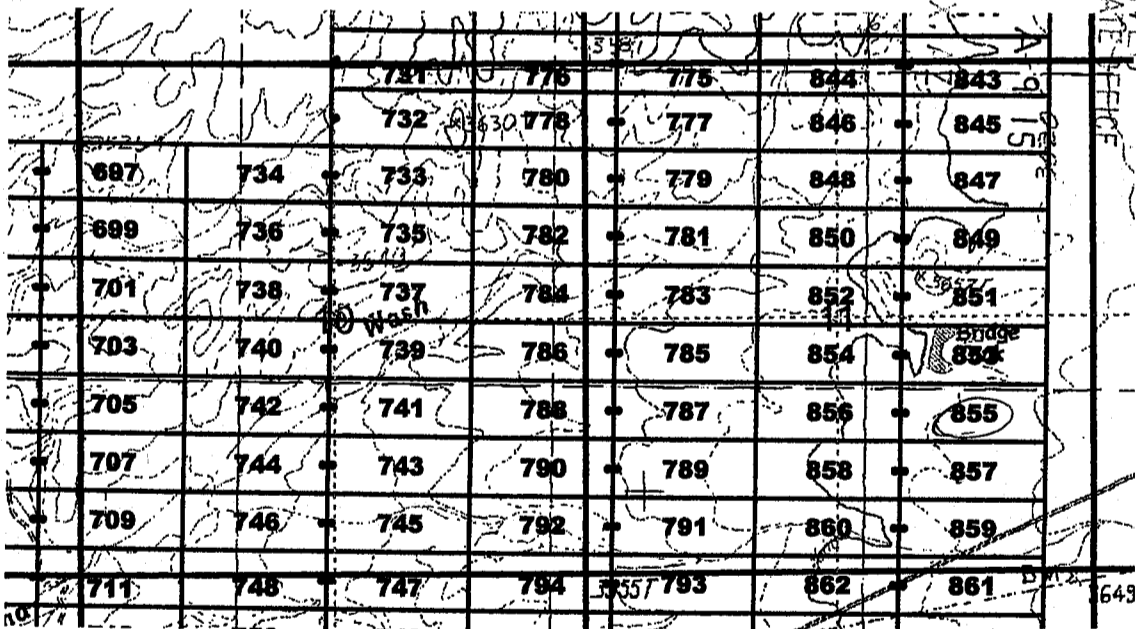 3481
731 776 775 844 843
732 3630T 778 777 846 845
697 734 733 780 779 848 847
699 736 735 782 781 850 849
701 738 737 784 783 852 851
Wash
Bridge
703 740 739 786 785 854 853
705 742 741 788 787 856 855
707 744 743 790 789 858 857
709 746 745 792 791 860 859
711 748 747 794 3555T 793 862 861
A 9 15